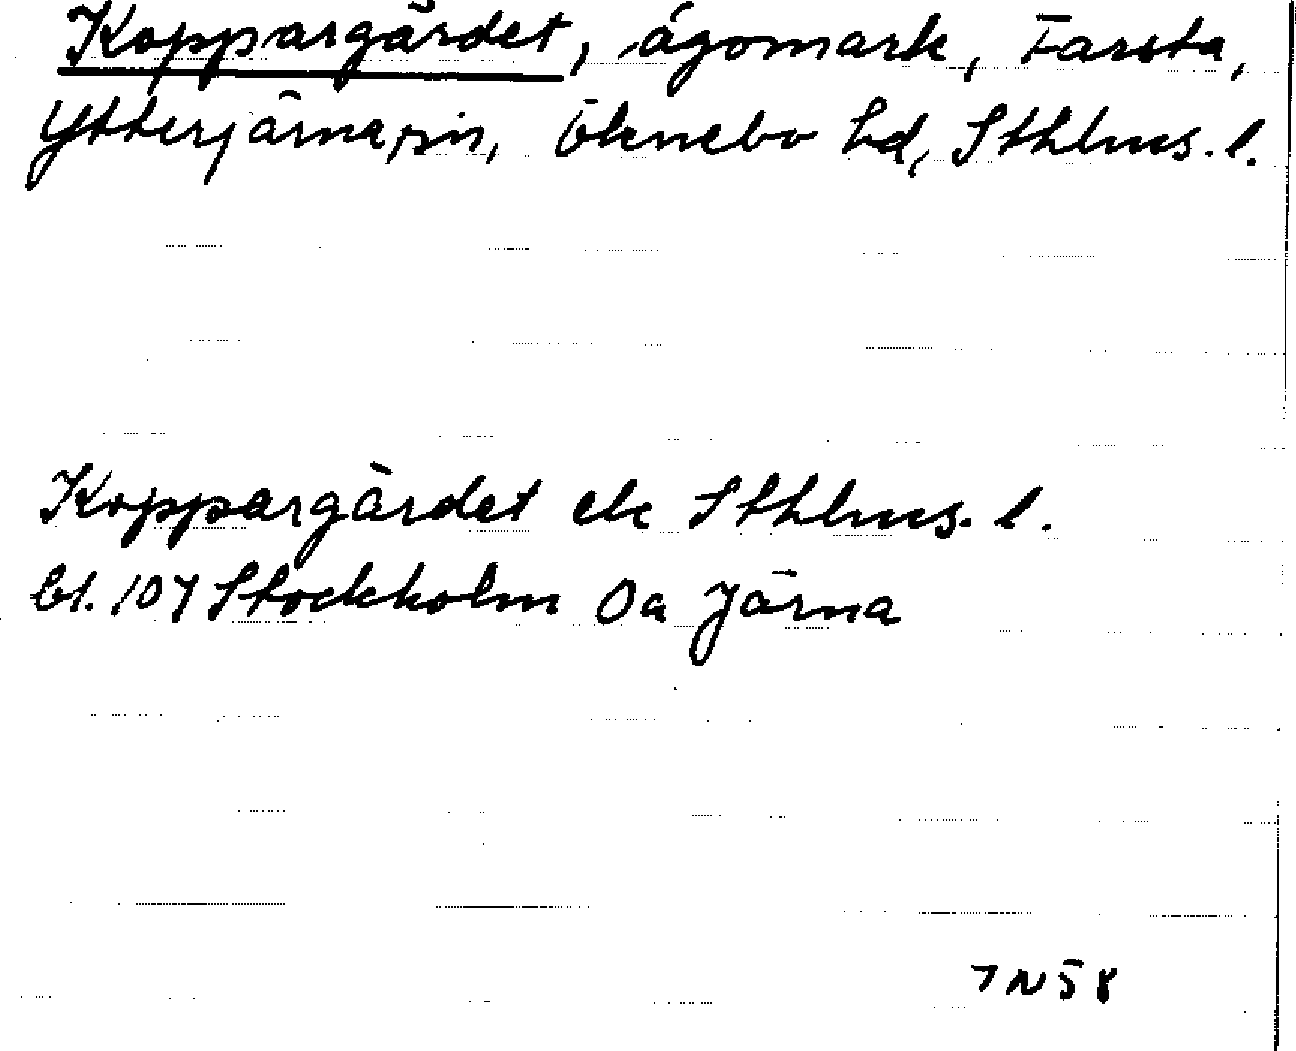 Koppargärdet, ägomark, Farsta,
Ytterjärna sn, Öknebo hd, Sthlms. l.
Koppargärdet ek Sthlms. l.
bl. 107 Stockholm Oa Järna
7N58